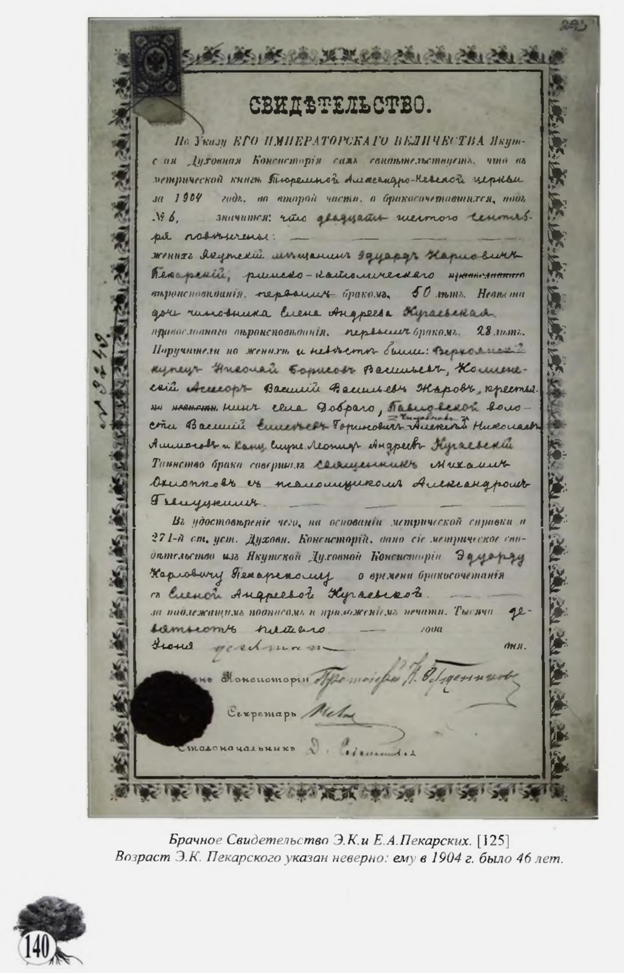 292
СВИДѢТЕЛЬСТВО.
По Указу ЕГО ИМПЕРАТОРСКАГО ВЕЛИЧЕСТВА Якут-
ская Духовная Консисторія симъ свидѣтельствуетъ, что въ
метрической книгѣ Тюремной Александро-Невской церкви
за 1904 годъ, во второй части, о бракосочетавшихся, подъ
№ 6, значится: что двадцать шестого Сентяб-
ря повѣнчены:
женихъ Якутскій мѣщанинъ Эдуардъ Карловичъ
Пекарскій, римско-католическаго православнаго
вѣроисповѣданія, первымъ бракомъ, 50 лѣтъ. Невѣста
дочь чиновника Елена Андреева Кугаевская
православнаго вѣроисповѣданія, первымъ бракомъ, 28 лѣтъ.
Поручители по женихѣ и невѣстѣ были: Верхоянскій
купецъ Николай Борисовъ Васильевъ, Коллеж-
скій Асессоръ Василій Васильевъ Жаровъ, крестья-
нинъ села Добраго, Павловской воло-
сти Василій Елисѣевъ Гориновичъ Алексѣй Николаевъ
Аммосовъ и Канц. Служ. Леонидъ Андреевъ Кугаевскій
Таинство брака совершилъ священникъ Михаилъ
Охлопковъ съ псаломщикомъ Александромъ
Въ удостовѣреніе чего, на основаніи метрической справки и
271-й ст. уст. Духовн. Консисторій, дано сіе метрическое сви-
дѣтельство изъ Якутской Духовной Консисторіи Эдуарду
Карловичу Пекарскому о времени бракосочетанія
съ Еленой Андреевой Кугаевской.
за надлежащимъ подписомъ и приложеніемъ печати. Тысяча де-
вятьсотъ пятаго года
Іюня десятаго дня.
Консисторіи Протоіерей
Секретарь
Столоначальникъ Д.
Брачное Свидетельство Э.К.и Е.А.Пекарских. [125]
Возраст Э.К. Пекарского указан неверно: ему в 1904 г. было 46 лет.
140